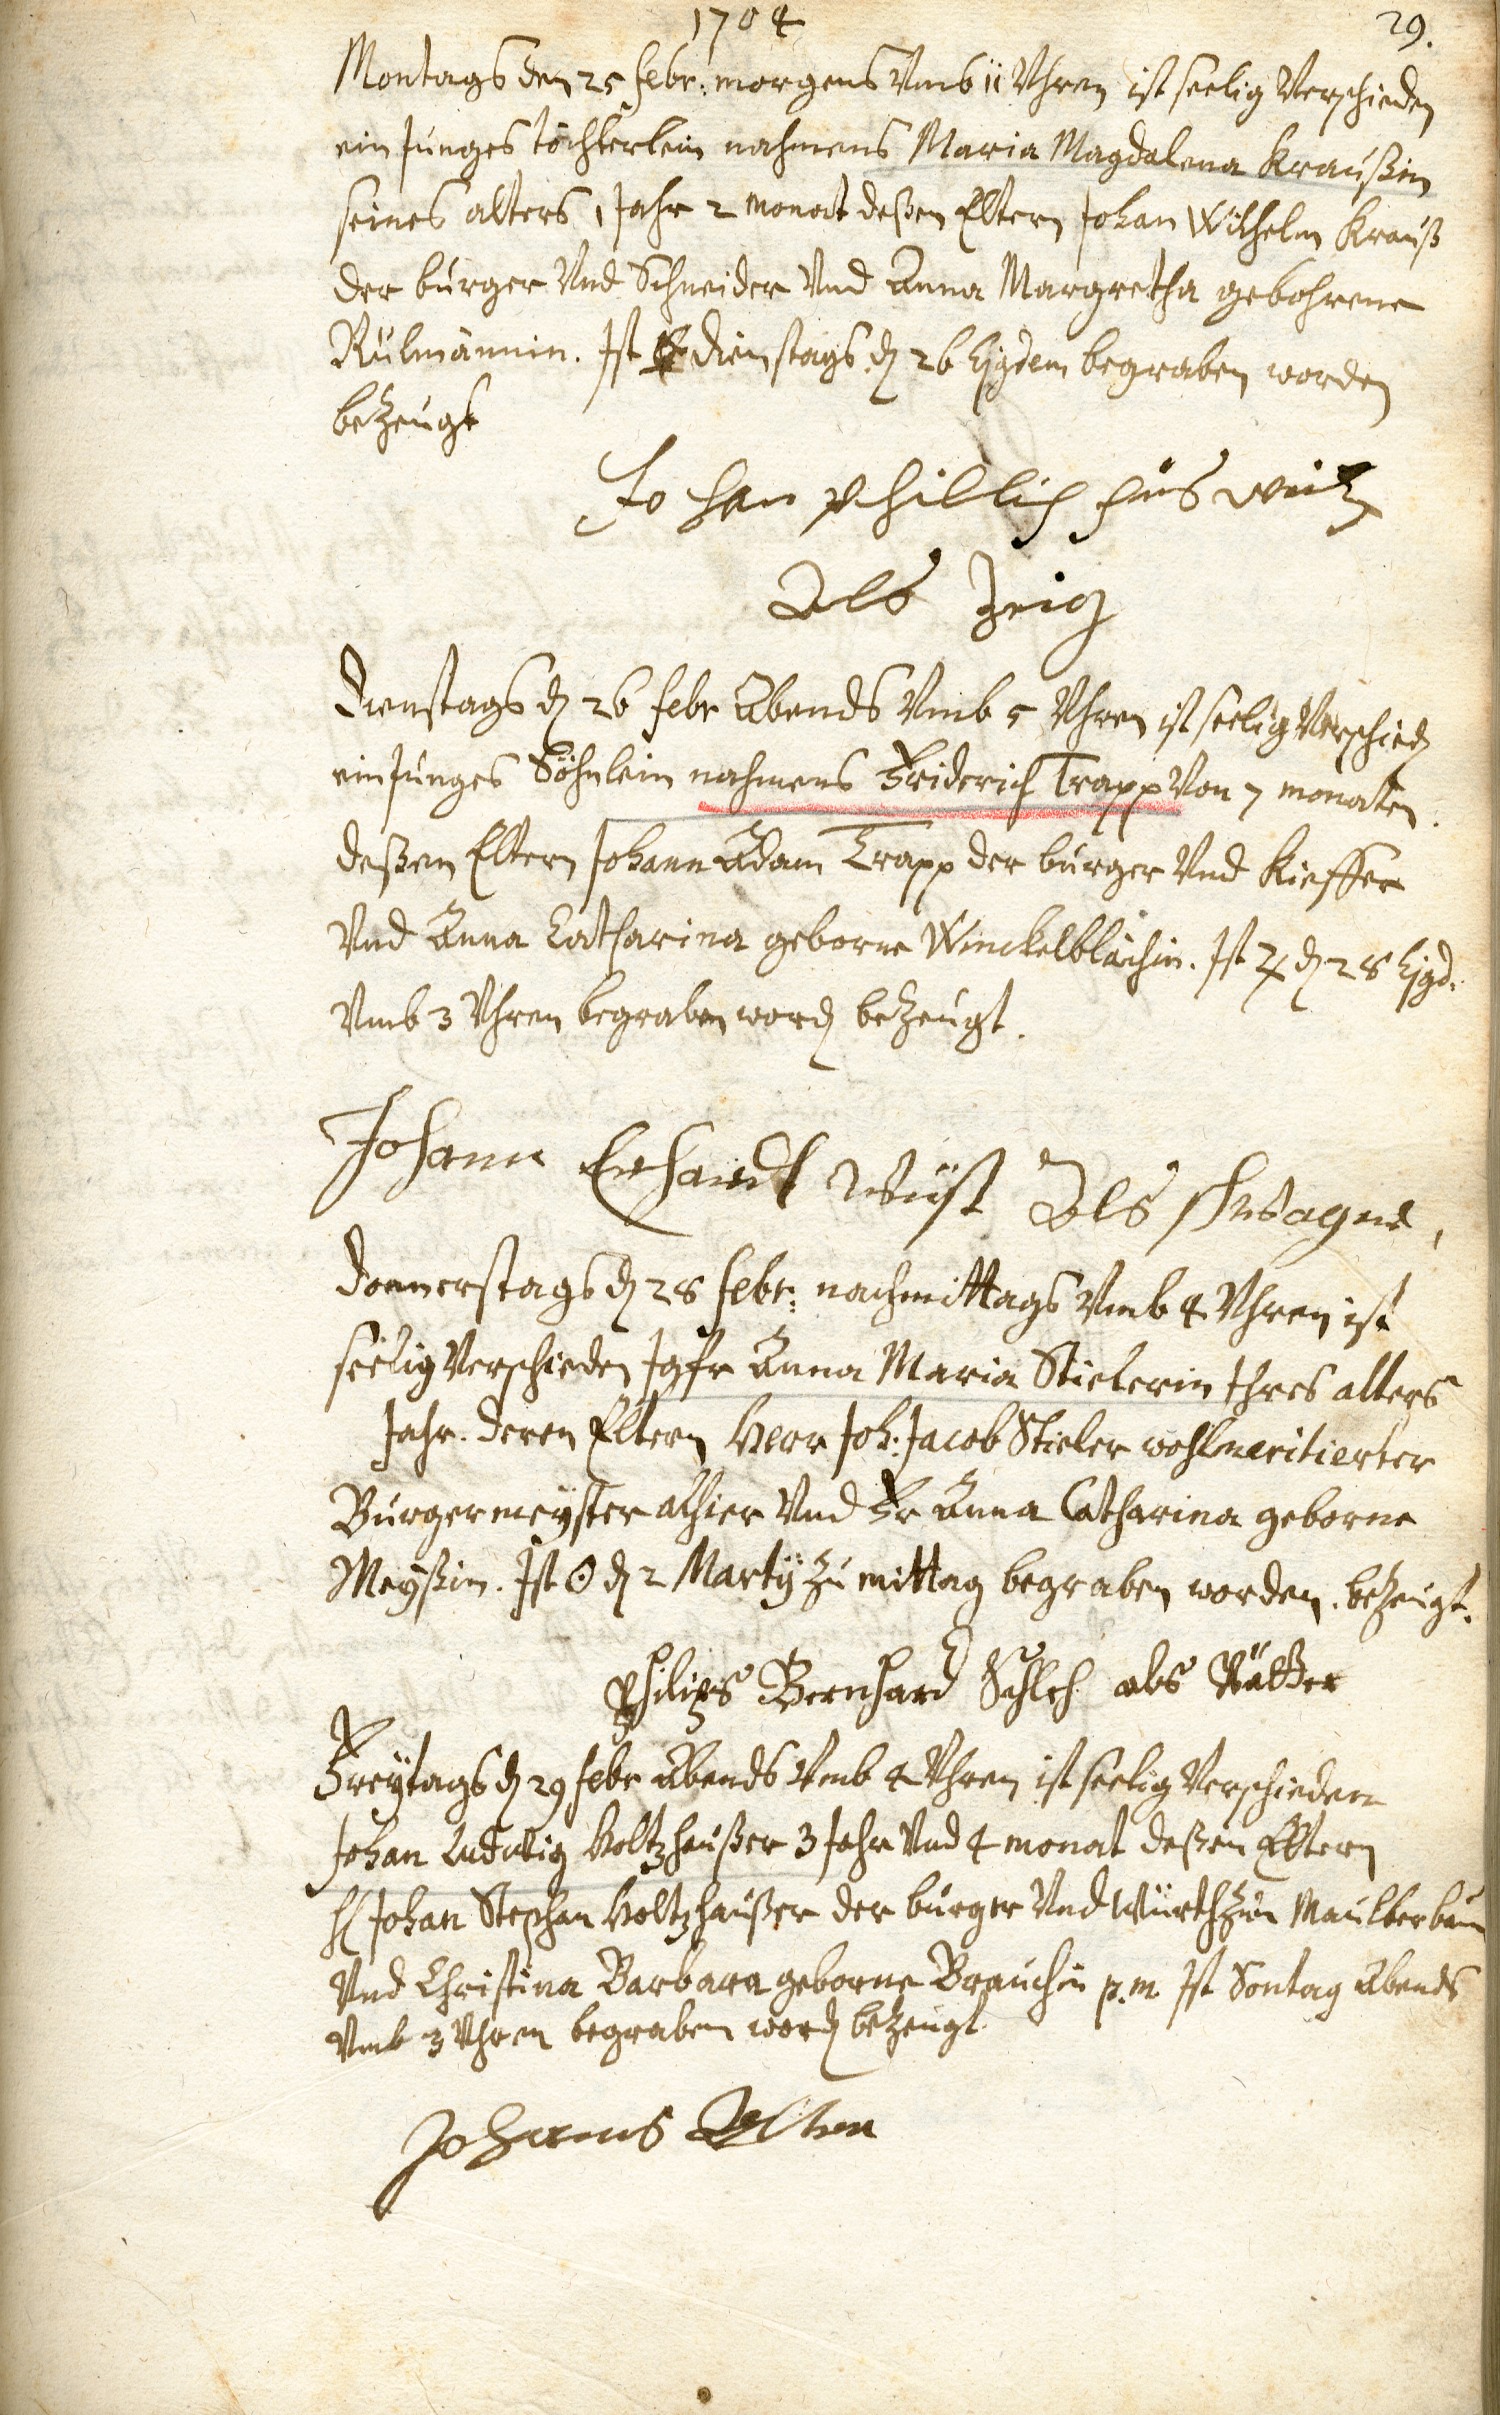 1704
29.
Montags den 25 febr: morgens Vmb 11 Vhren ist seelig Verschieden
ein Junges töchterlein nahmens Maria Magdalena Kraußin
seines alters 1 Jahr 2 monat deßen Eltern Johan Wilhelm Krauß
der burger Vnd Schneider Vnd Anna Margretha gebohrene
Rulmännin. Ist dienstags d 26 Ejgdem begraben worden
bezeugt
Johan Phillip
Als Zeig
Dienstags d 26 febr Abends Vmb 5 Vhren ist seelig Verschied
ein Junges Söhnlein nahmens Friderich Trapp Von 7 monaten.
deßen Eltern Johann Adam Trapp der burger Vnd Kieffer
Vnd Anna Catharina geborne Winckelblächin. Ist ♃ d 28 Ejgd.
Vmb 3 Vhren begraben word bezeugt.
Johann Erhardt Wüst Als
Donnerstags d 28 febr: nachmittags Vmb 4 Vhren ist
seelig Verschieden Jgfr Anna Maria Stielerin Ihres alters
Jahr. deren Eltern Herr Joh: Jacob Stieler wohlmeritierter
Burgermeyster alhier Vnd Fr Anna Catharina geborne
Meyßin. Ist ☉ d 2 Martÿ zu mittag begraben worden. bezeugt.
Philips Bernhard als Vätter
Freÿtags d 29 febr Abends Vmb 4 Vhren ist seelig Verschieden
Johan Ludwig Holtzhaußer 3 Jahr Vnd 4 monat deßen Eltern
H Johan Stephan Holtzhaußer der burger Vnd Würth Zum Maulberbaum
Vnd Christina Barbara geborne Brauchin p.m. Ist Sontag Abends
Vmb 3 Vhren begraben word bezeugt
Johannes